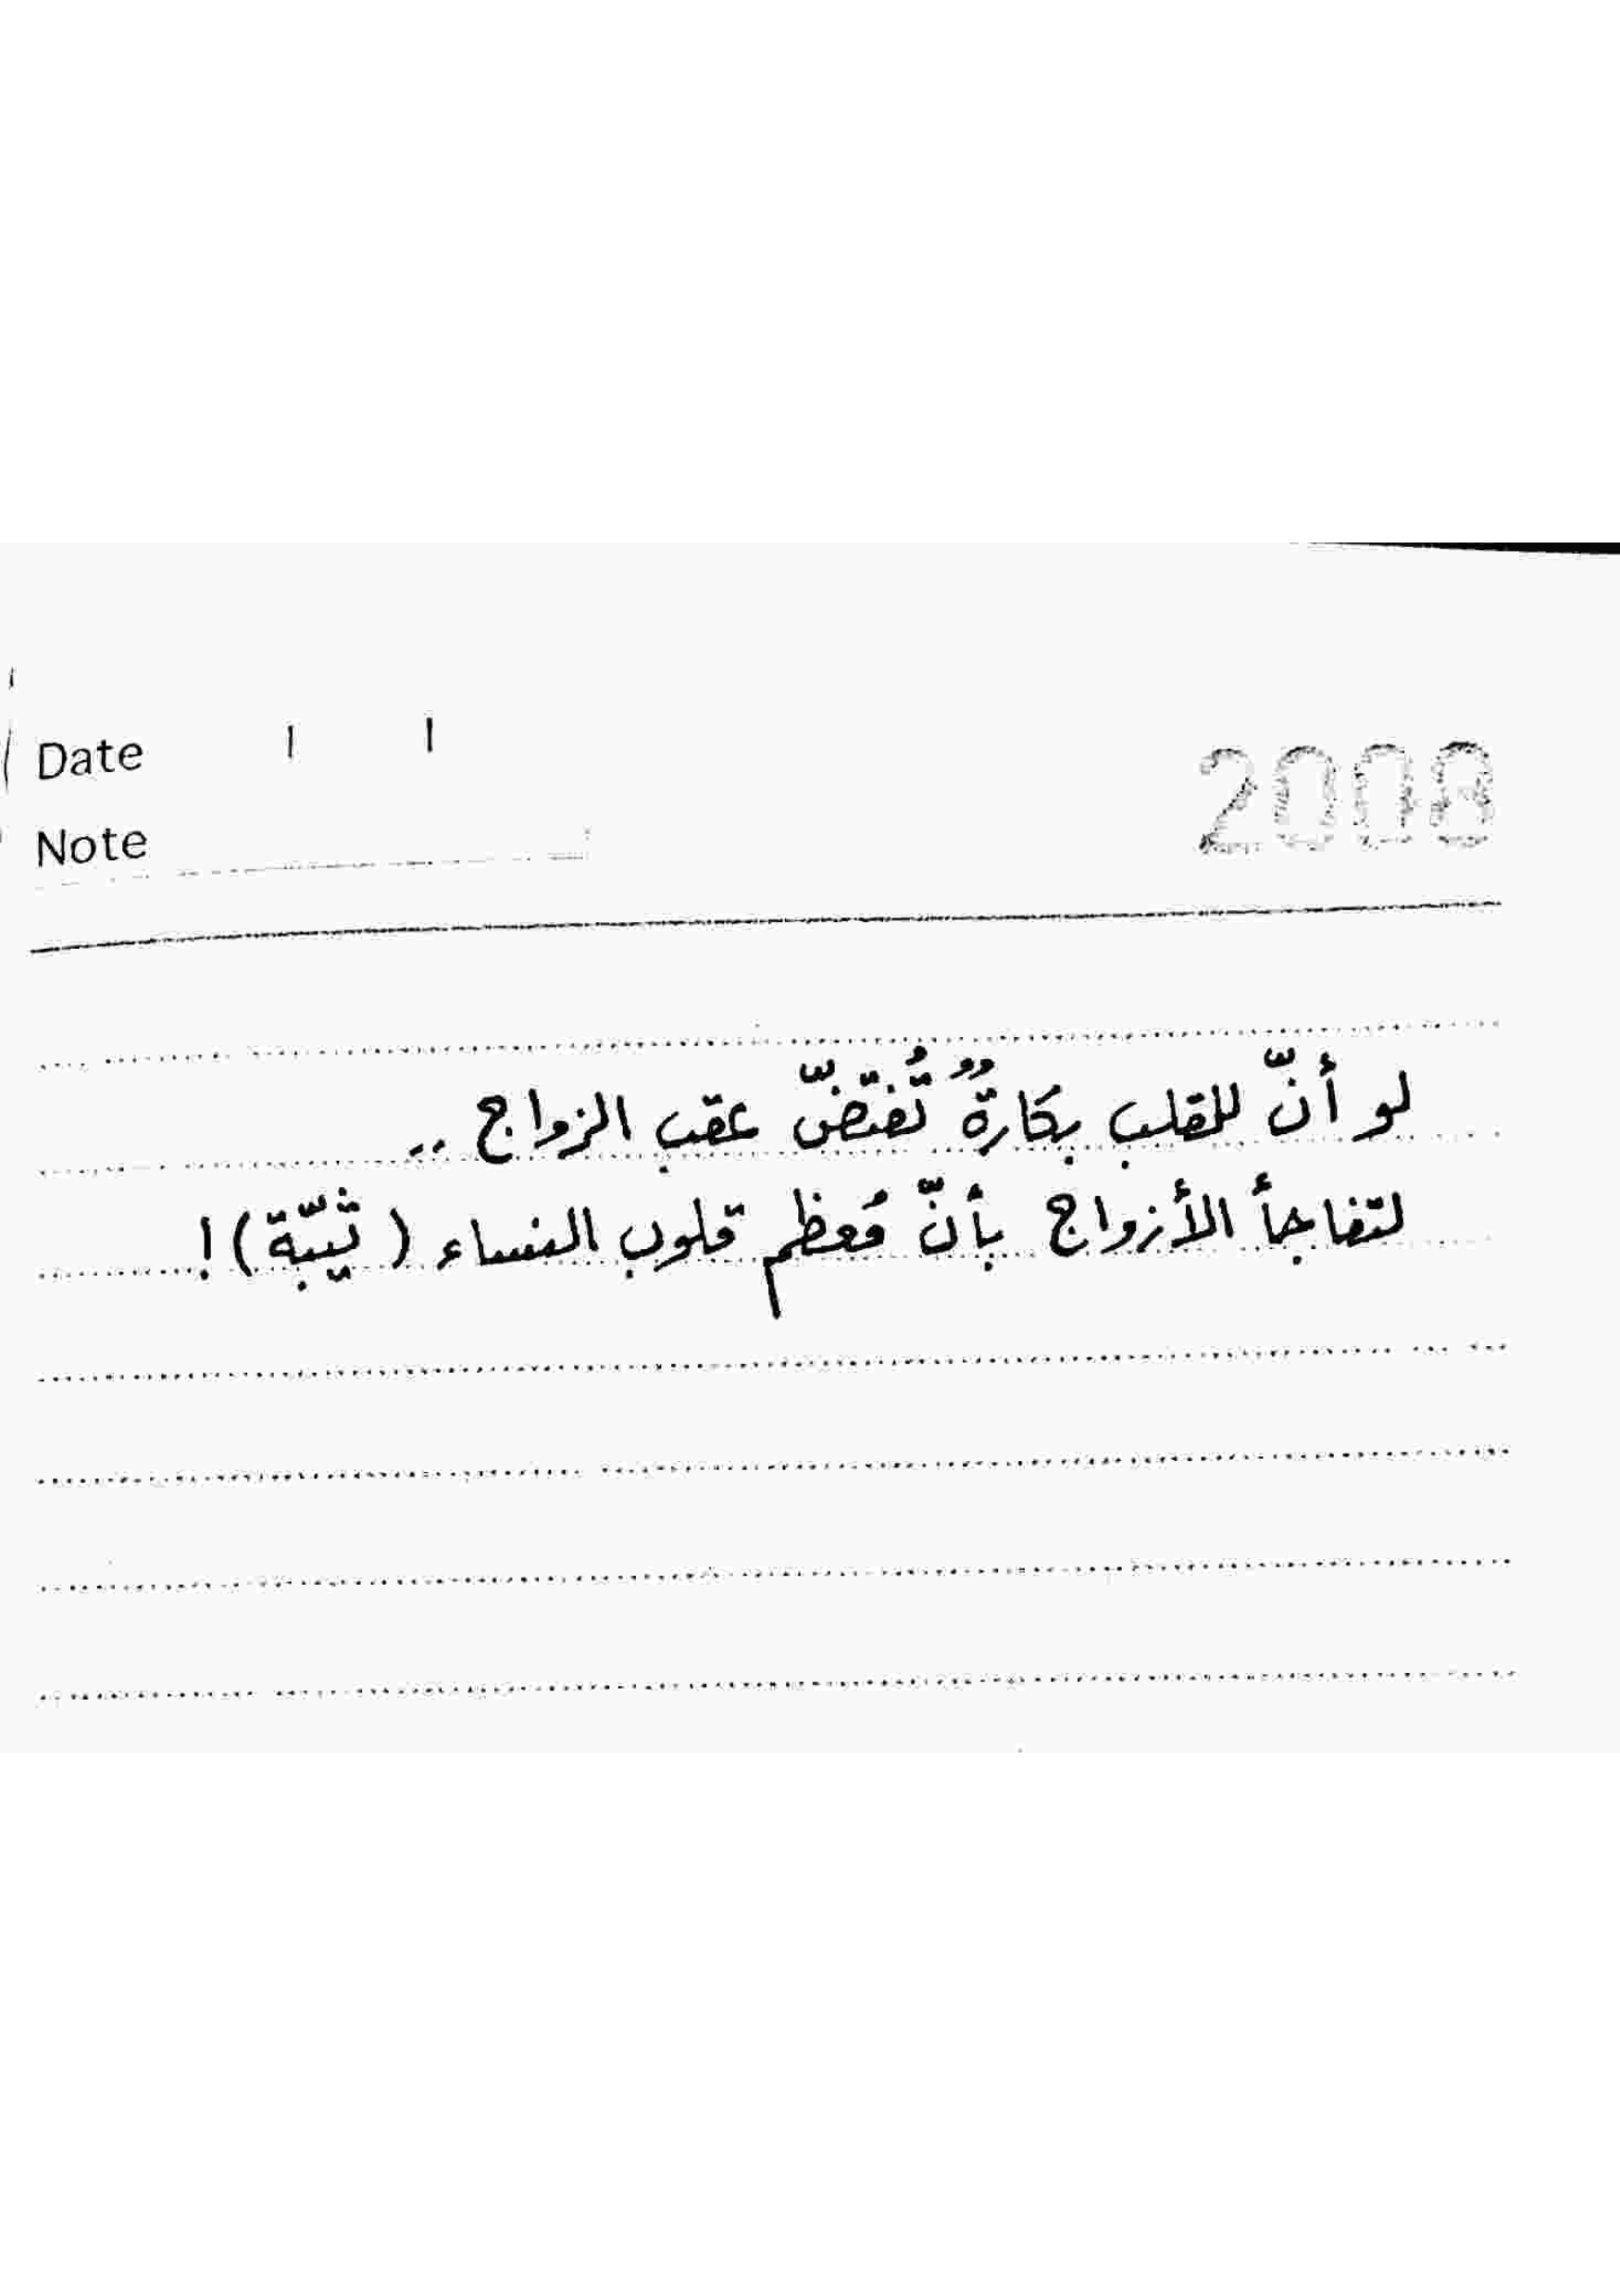 Date / /
2008
Note
لو أنّ للقلب بكارةٌ تُفتضّ عقب الزواج ..
لتفاجأ الأزواج بأنّ مُعظم قلوب النساء ( ثيّبة ) !